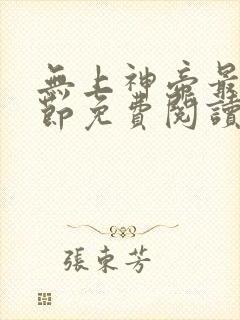 無上神帝最
節免費閱讀
張東芳